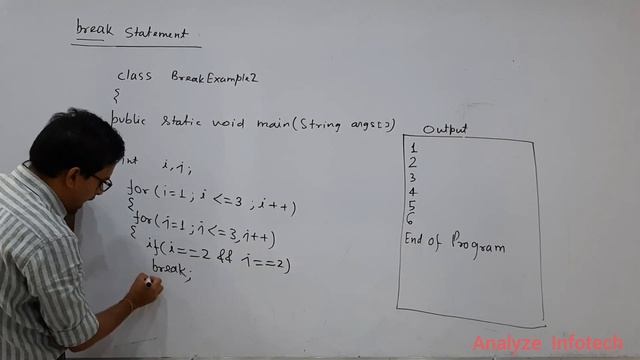 break Statement
class BreakExample2
{
public static void main(String args[])
int i,j;
for(i=1; i<=3; i++)
{
for(j=1; j<=3, j++)
{
if(i==2 && j==2)
break;
Output
1
2
3
4
5
6
End of Program
Analyze Infotech